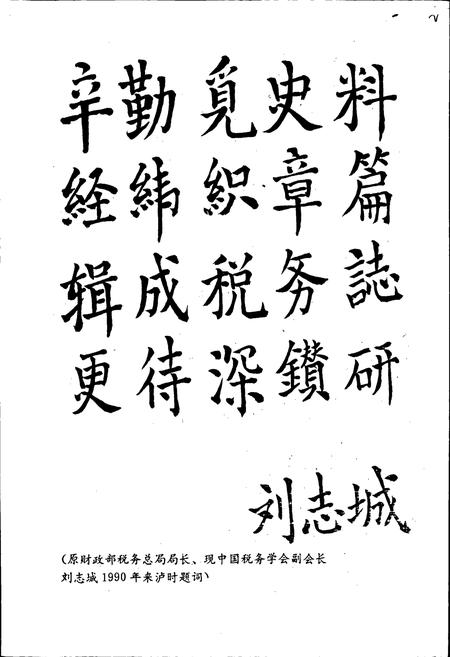 辛勤觅史料
経緯織章篇
辑成税务誌
更待深鑚研
刘志城
(原财政部税务总局局长、现中国税务学会副会长
刘志城1990年来泸时题词)